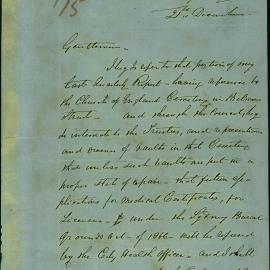 75
21st December
Gentlemen
I beg to report that portion of my
last Quarterly Report having reference to
the Church of England Cemetery in
Street - and through the Council,
do intimate to the Trustees, and representatives
and owners of Vaults in that Cemetery
that unless such Vaults are put in a
proper state of repair - that future ap-
plications for Medical Certificates, for
Licenses under the Sydney Burial
Grounds Act of 1866 will be refused
by the City Health Officer - and I shall